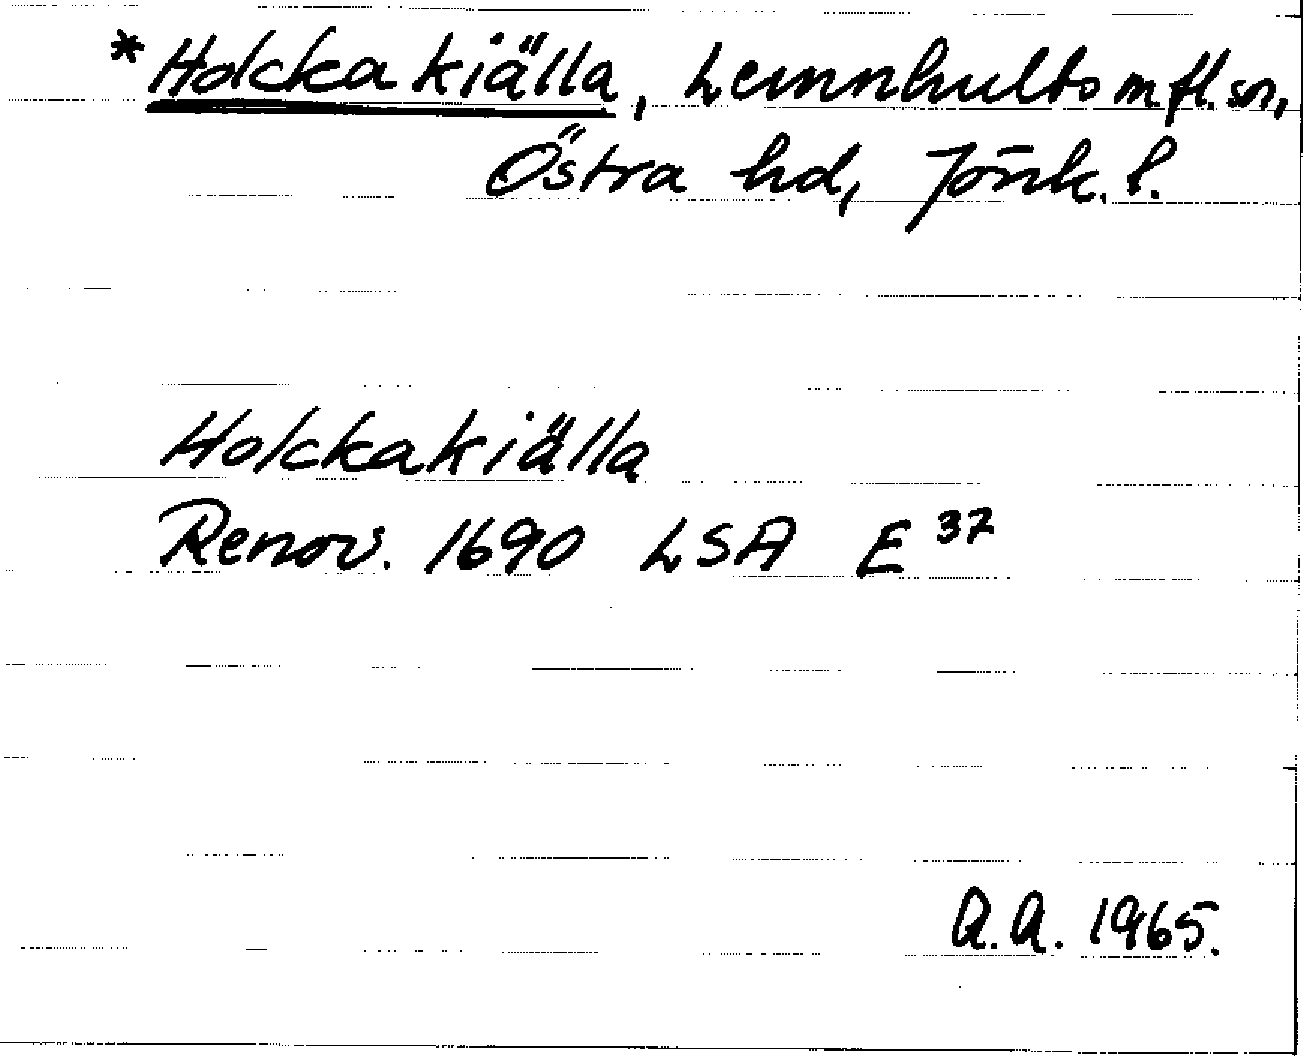 *Holckakiälla, Lemnhults m.fl. sn,
Östra hd, Jönk. l.
Holckakiälla
Renov. 1690 LSA E 37
A.A. 1965.